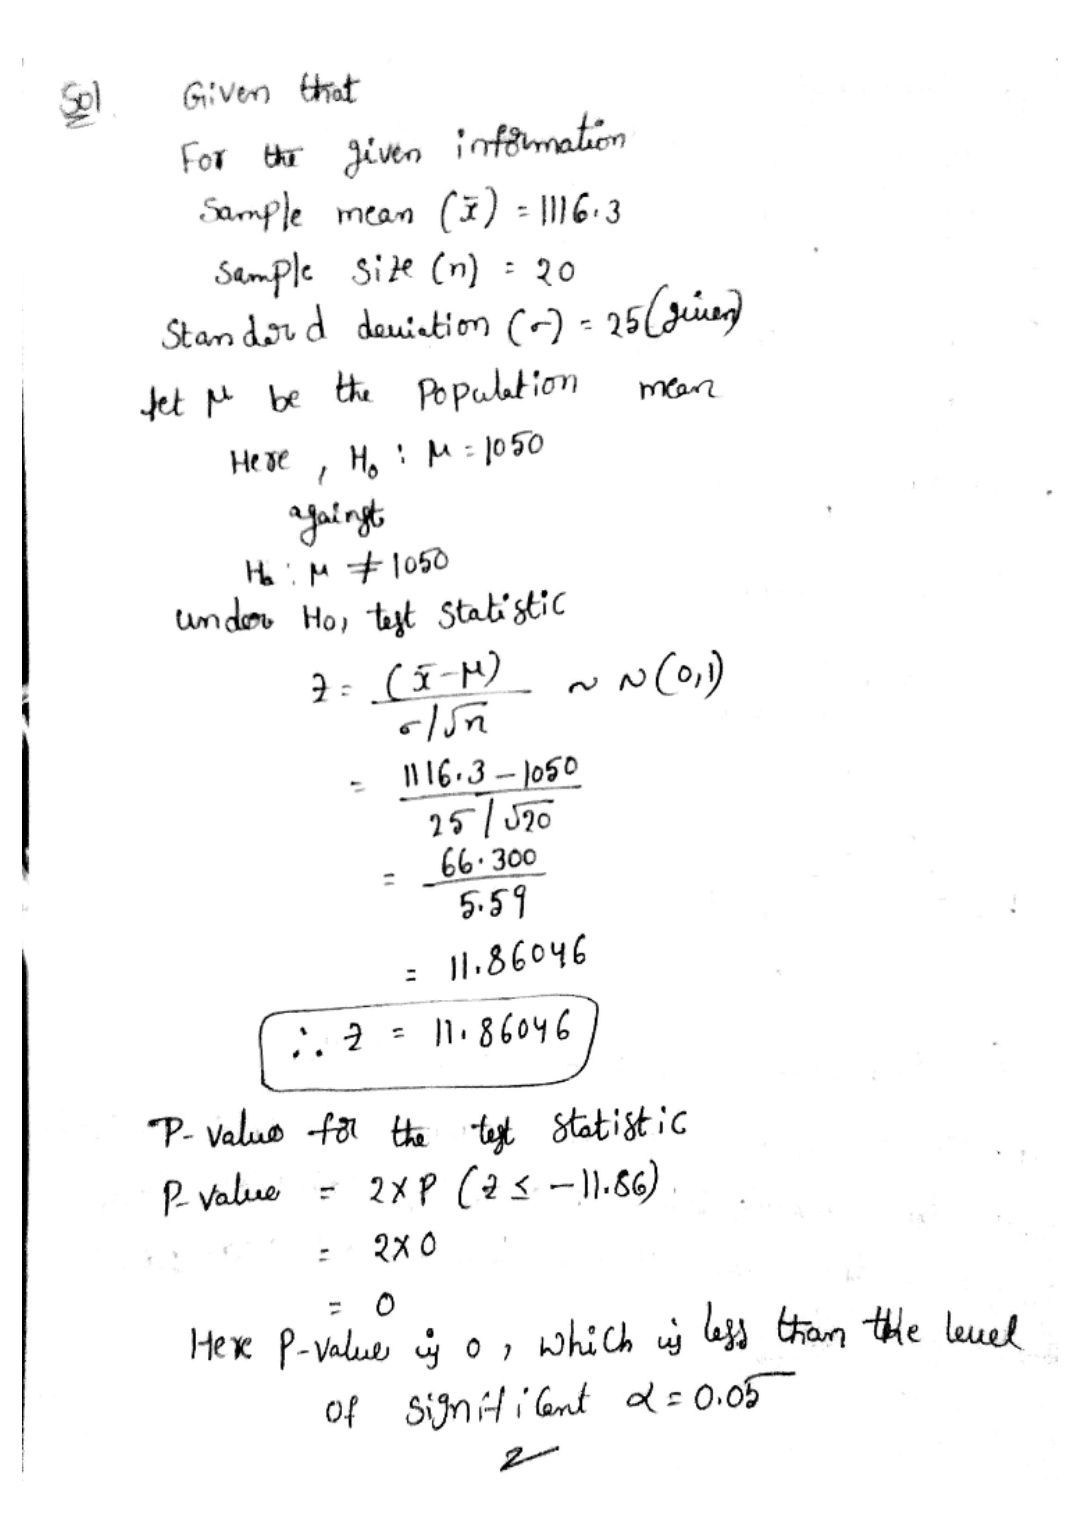 Sol Given that
For the given information
Sample mean (x̄) = 1116.3
Sample size (n) = 20
Standard deviation (σ) = 25 (given)
Let μ be the Population mean
Here, H₀ : μ = 1050
against
Hₐ : μ ≠ 1050
under H₀, test statistic
z = (x̄ - μ) / σ/√n ~ N(0,1)
= 1116.3 - 1050 / 25/√20
= 66.300 / 5.59
= 11.86046
∴ z = 11.86046
P-value for the test statistic
P-value = 2×P(z ≤ -11.86)
= 2×0
= 0
Here P-value is 0, which is less than the level
of significant α = 0.05
2